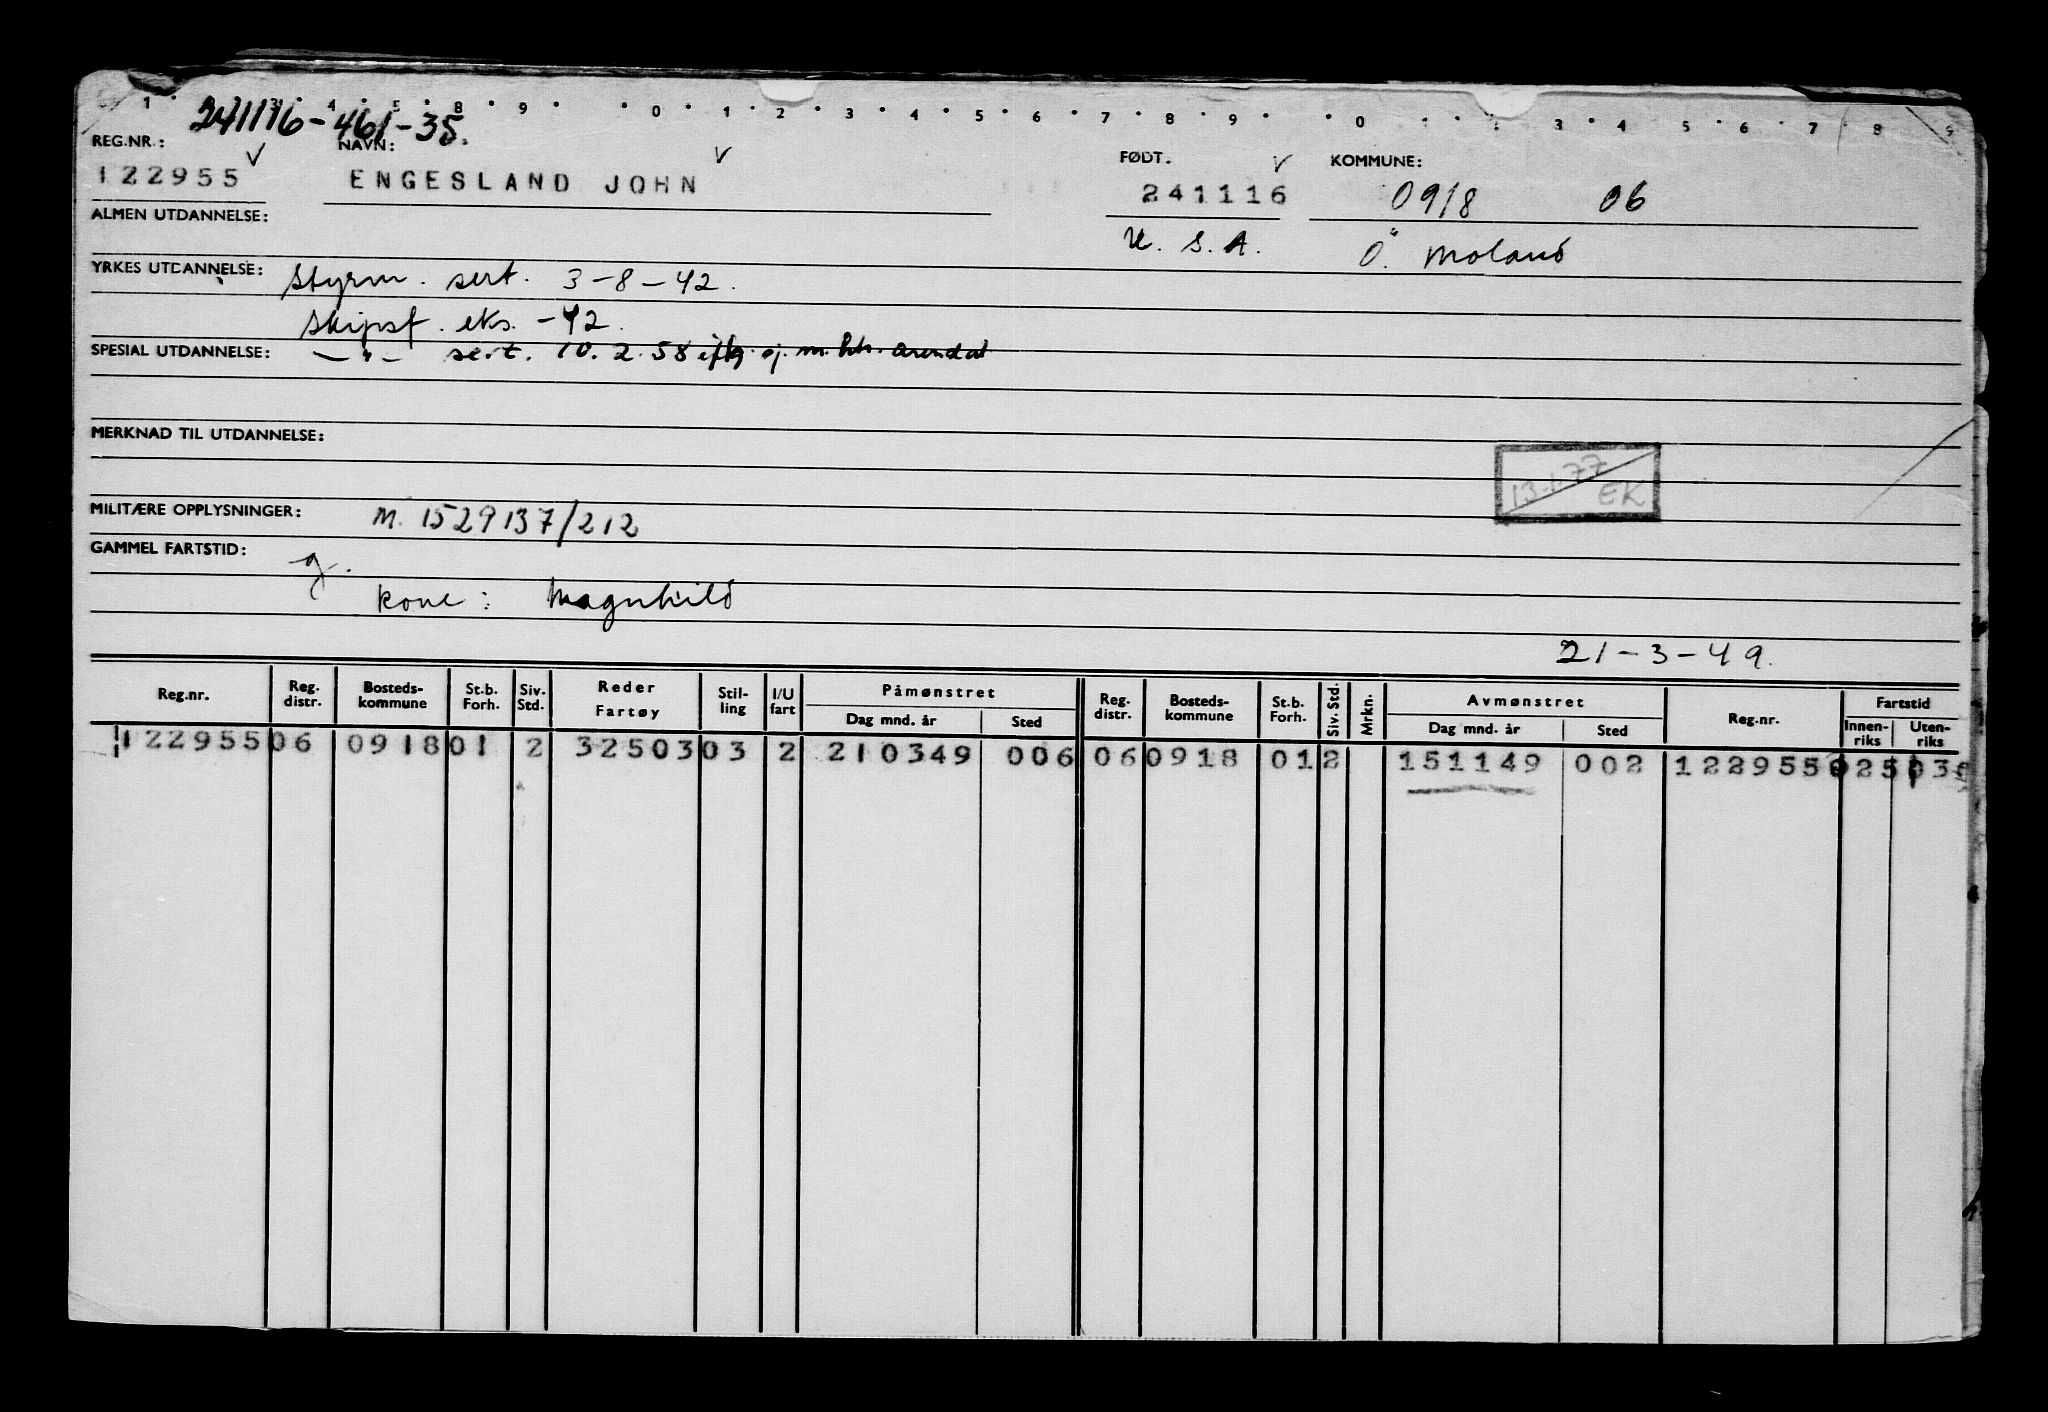 1 3 4 5 8 9 0 1 2 3 4 5 6 7 8 9 0 1 2 3 4 5 6 7 8 9
241116-461-35.
REG.NR.: NAVN: FØDT. KOMMUNE:
122955 ENGESLAND JOHN 241116 0918 06
ALMEN UTDANNELSE: U. S. A. Ö. Moland
YRKES UTDANNELSE: Styrm. sert. 3-8-42.
Skipsf. eks. -42.
SPESIAL UTDANNELSE: —"— sert. 10.2.58 iflg. oj. m. htr. Arendal
MERKNAD TIL UTDANNELSE:
13.1.77
EK
MILITÆRE OPPLYSNINGER: M. 1529137/212
GAMMEL FARTSTID: g.
kone: Magnhild
21-3-49.
Reg.nr. Reg. distr. Bosteds-kommune St.b. Forh. Siv. Std. Reder Fartøy Stil-ling I/U fart Påmønstret Dag mnd. år Sted Reg. distr. Bosteds-kommune St.b. Forh. Siv. Std. Mrkn. Avmønstret Dag mnd. år Sted Reg.nr. Fartstid Innen-riks Uten-riks
122955 06 0918 01 2 32503 03 2 210349 006 06 0918 01 2 151149 002 122955 025 03